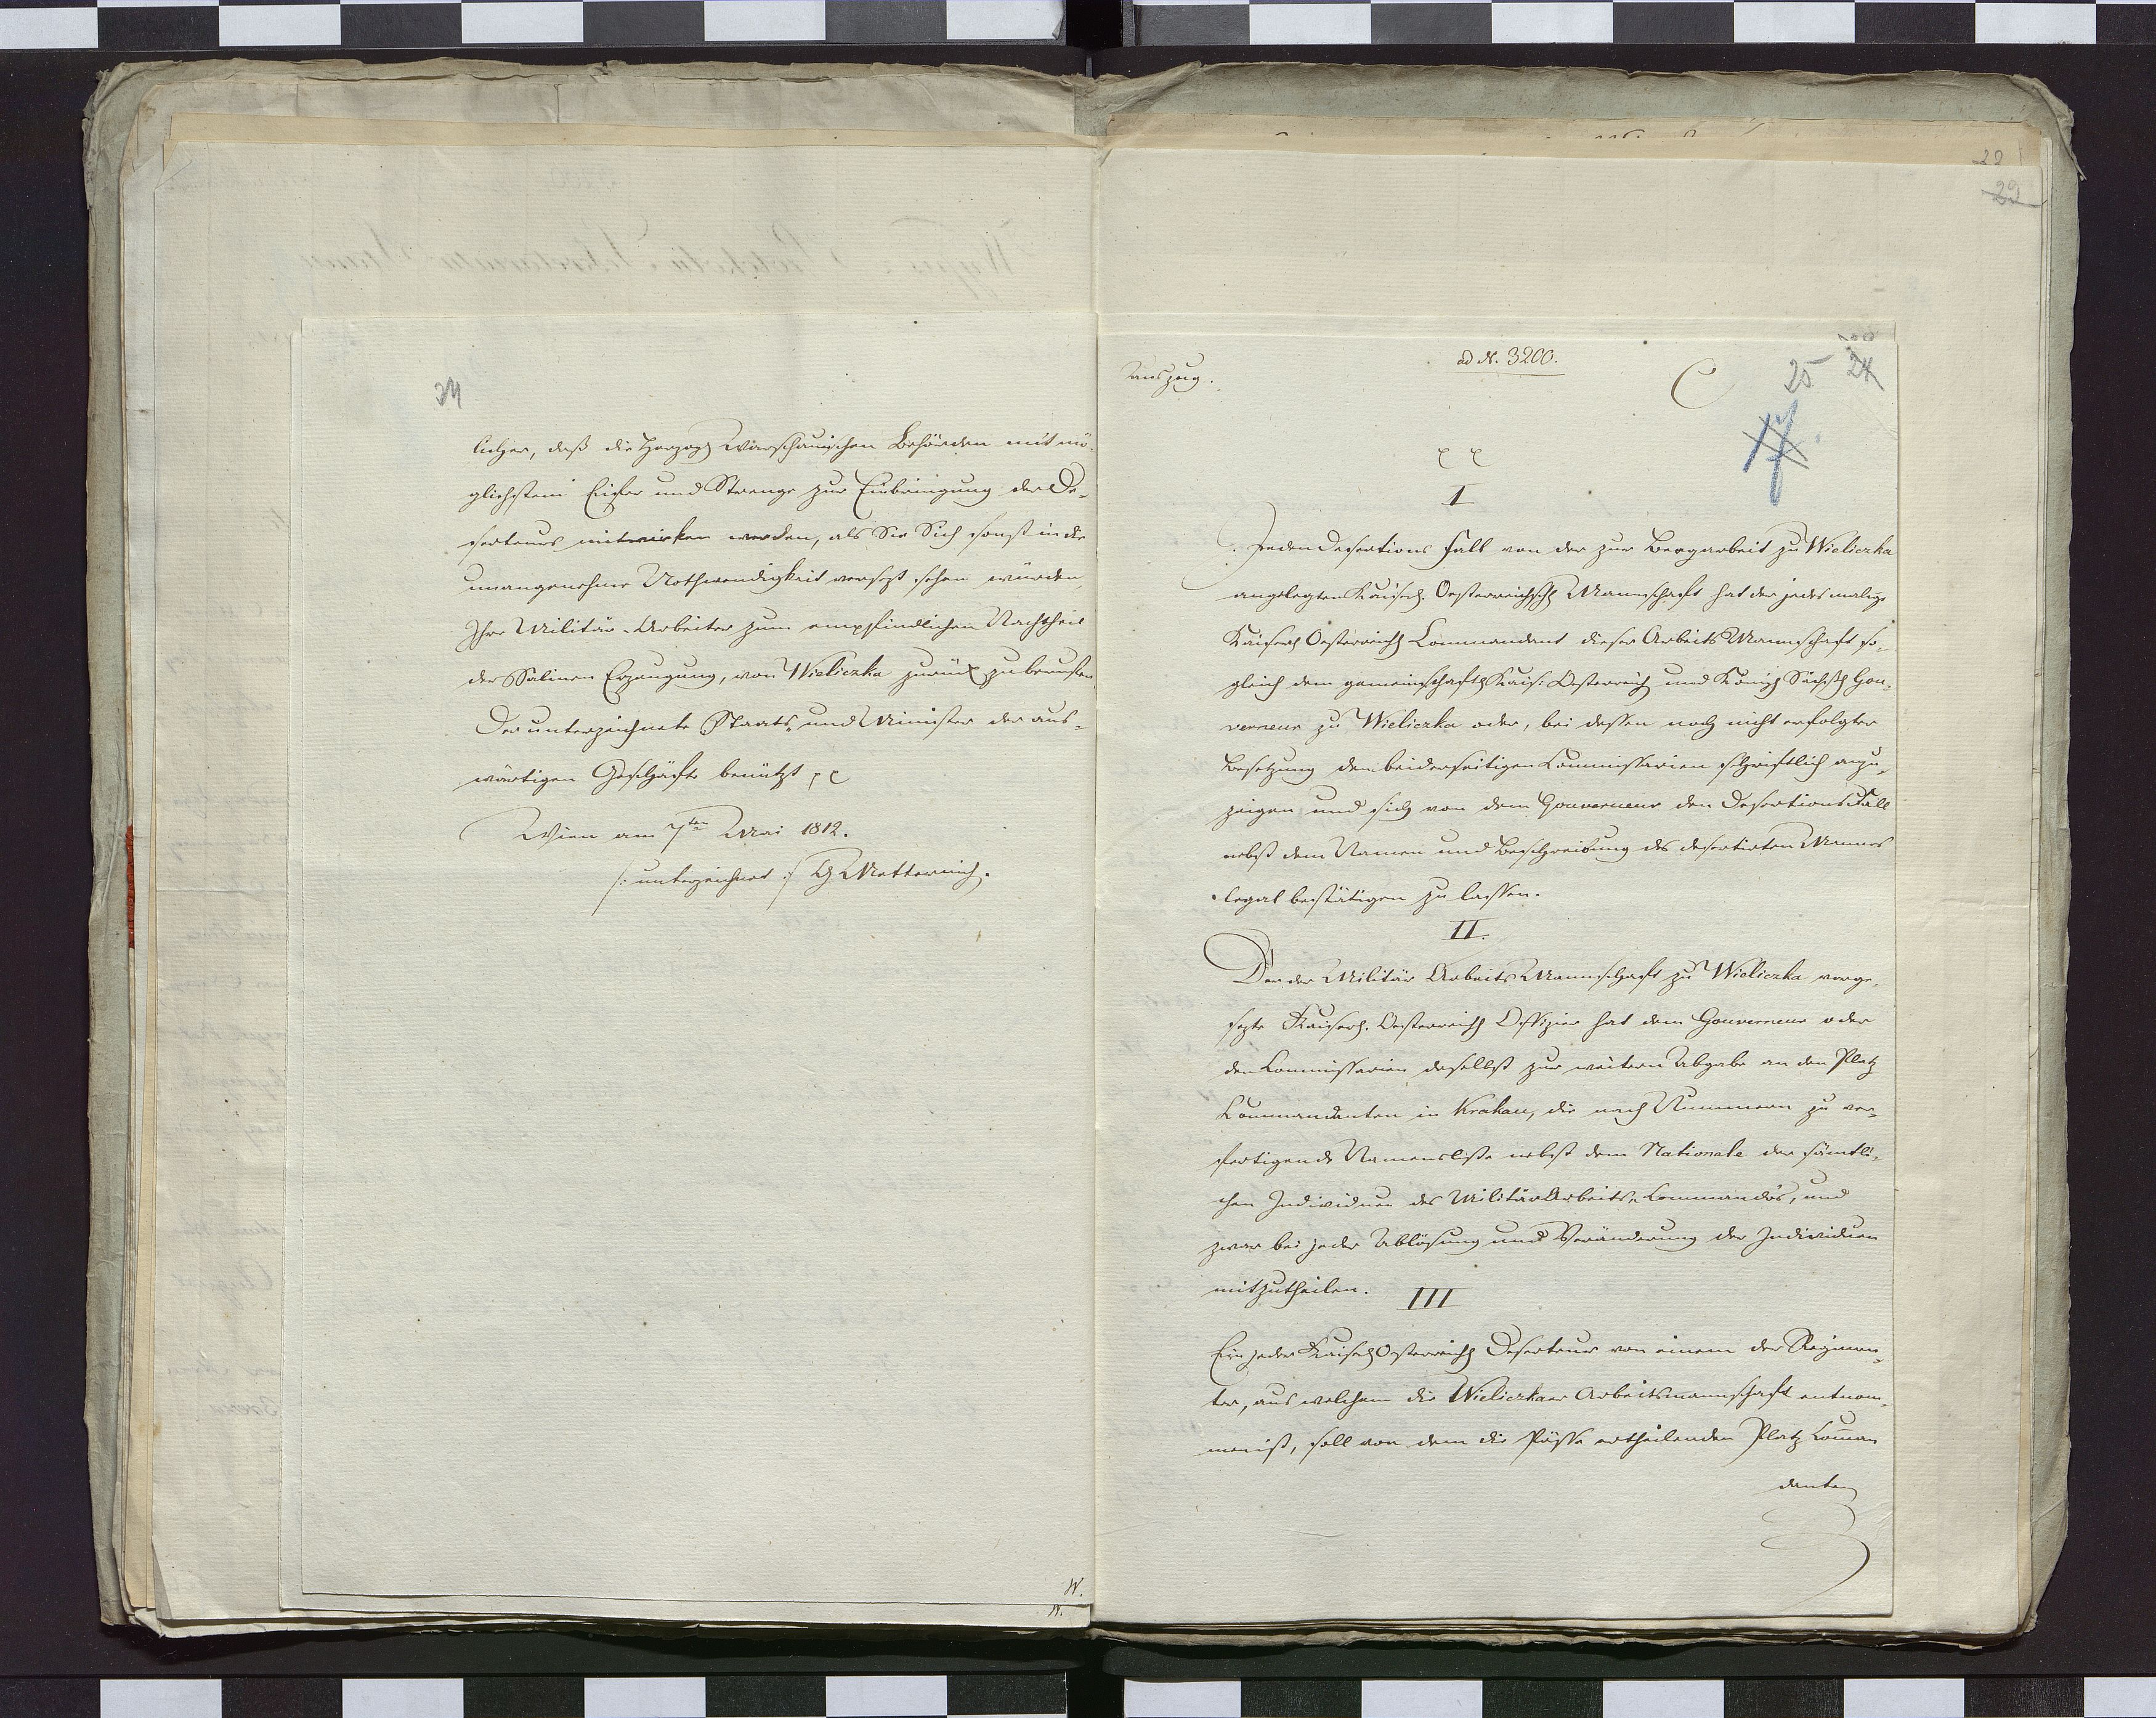 24
licher, daß die Herzogl Warschauischen Behörden mit mö-
glichstem Eifer und Strenge zur Einbringung der De-
serteurs mitwirken werden, als Sie Sich sonst in die
unangenehme Nothwendigkeit versezt sehen würden,
Ihre Militär-Arbeiter zum empfindlichen Nachtheil
der Salinen Erzeugung, von Wieliczka zurück zu berufen
Der unterzeichnete Staats- und Minister der aus-
wärtigen Geschäfte benützt
Wien am 7ten Mai 1812.
/: unterzeichnet :/ G Metternich.
W.
W.
22
29
Auszug.
ad N. 3200.
C
25 24
17
I
Jeden Desertions Fall von der zur Bergarbeit zu Wieliczka
angelegten Kaiserl. Oesterreichschl Mannschaft hat der jedesmalige
Kaiserl Oesterreichl Commandant dieser Arbeits Mannschaft so-
gleich dem gemeinschaftl Kais: Oesterreich und Königl Sächsl Gou-
verneur zu Wieliczka oder, bei dessen noch nicht erfolgter
Besetzung den beiderseitigen Commissarien schriftlich anzu-
zeigen und sich von dem Gouverneur den Desertions Fall
nebst dem Namen und Beschreibung des desertirten Mannes
legal bestätigen zu lassen.
II.
Der der Militär Arbeits Mannschaft zu Wieliczka vorge-
sezte Kaiserl. Oesterreichl Offizier hat dem Gouverneur oder
den Commissarien daselbst zur weitern Abgabe an den Platz
Commandanten in Krakau, die nach Nummern zu ver-
fertigende Namensliste nebst dem Nationale der sämtli-
chen Individuen des Militär Arbeits-Commando's, und
zwar bei jeder Ablösung und Veränderung der Individuen
mitzutheilen.
III
Ein jeder Kaiserl Oesterreichl Deserteur von einem der Regimen-
ter, aus welchem die Wieliczkaer Arbeitsmannschaft entnom-
men ist, soll von dem die Pässe ertheilenden Platz Comman
danten